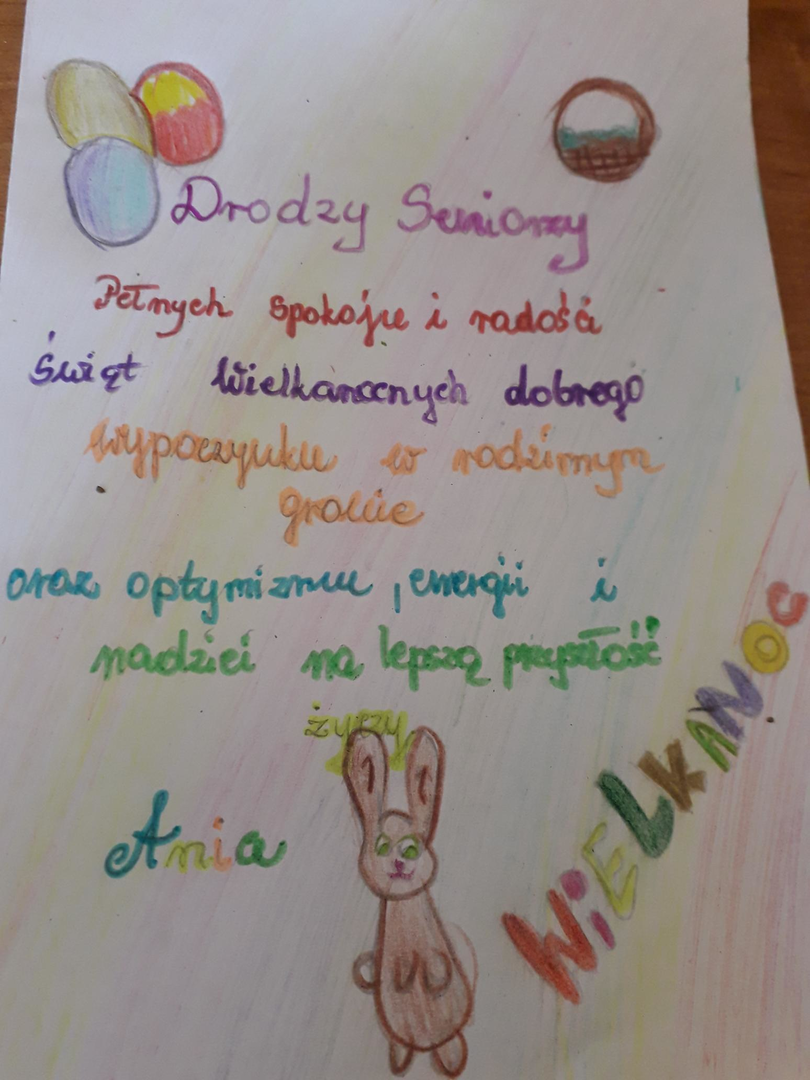 Drodzy Seniorzy
Pełnych spokoju i radości
Świąt Wielkanocnych dobrego
wypoczynku w rodzinnym
gronie
oraz optymizmu, energii i
nadziei na lepszą przyszłość
życzy
Ania
WiELKANOC